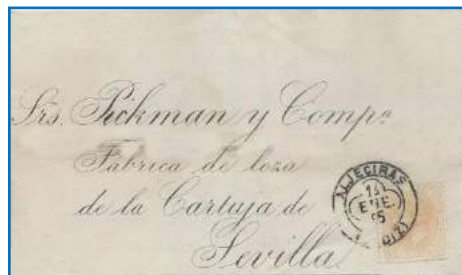 Srs. Pickman y Compª
Fabrica de loza
de la Cartuja de
Sevilla
ALJECIRAS
ENE.